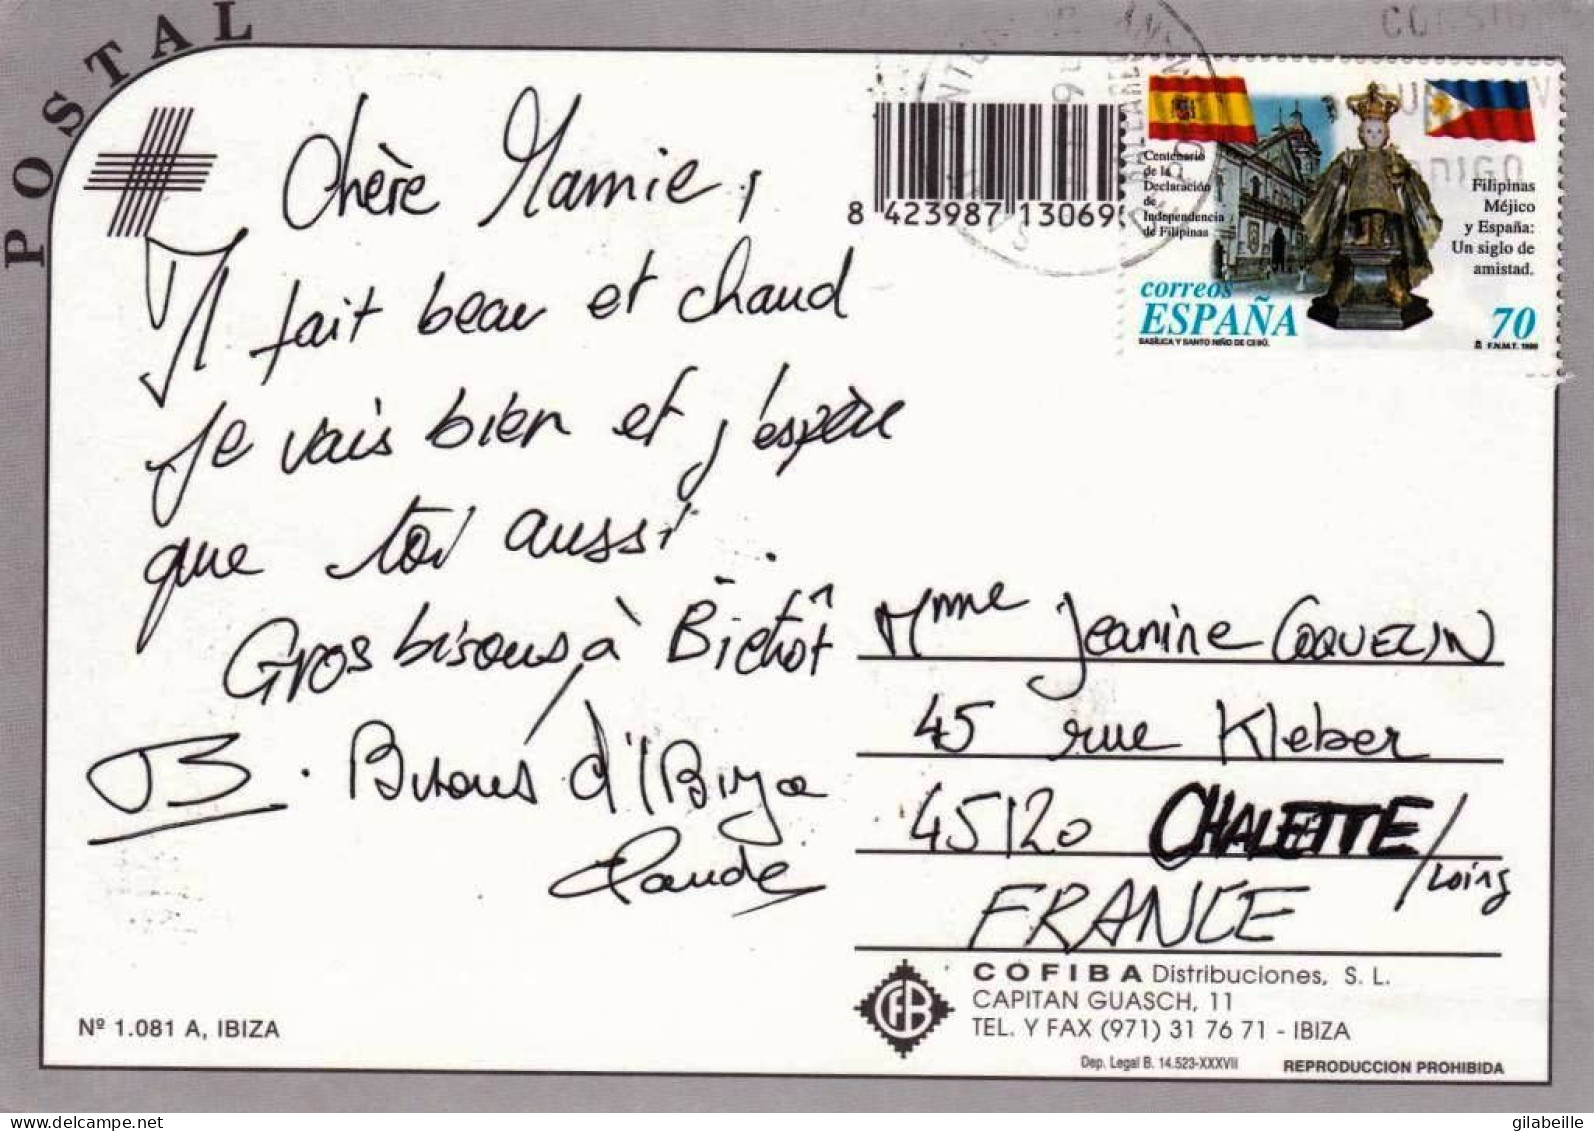 POSTAL
Chère Mamie,
Il fait beau et chaud
Je vais bien et j'espère
que toi aussi.
Gros bisous, à Bientôt
JB. Bisous d'IBiza
Claude
8 423987 13069
Centenario
de la
Declaración
de
Independencia
de Filipinas
Filipinas
Méjico
y España:
Un siglo de
amistad.
correos
ESPAÑA
70
BASILICA Y SANTO NIÑO DE CEBÚ.
F.N.M.T. 1998
BALEARES
Mme Jeanine COQUELIN
45 rue Kleber
45120 CHALETTE /
Loing
FRANCE
COFIBA Distribuciones, S. L.
CAPITAN GUASCH, 11
TEL. Y FAX (971) 31 76 71 - IBIZA
Nº 1.081 A, IBIZA
Dep. Legal B. 14.523-XXXVII
REPRODUCCION PROHIBIDA
gilabeille